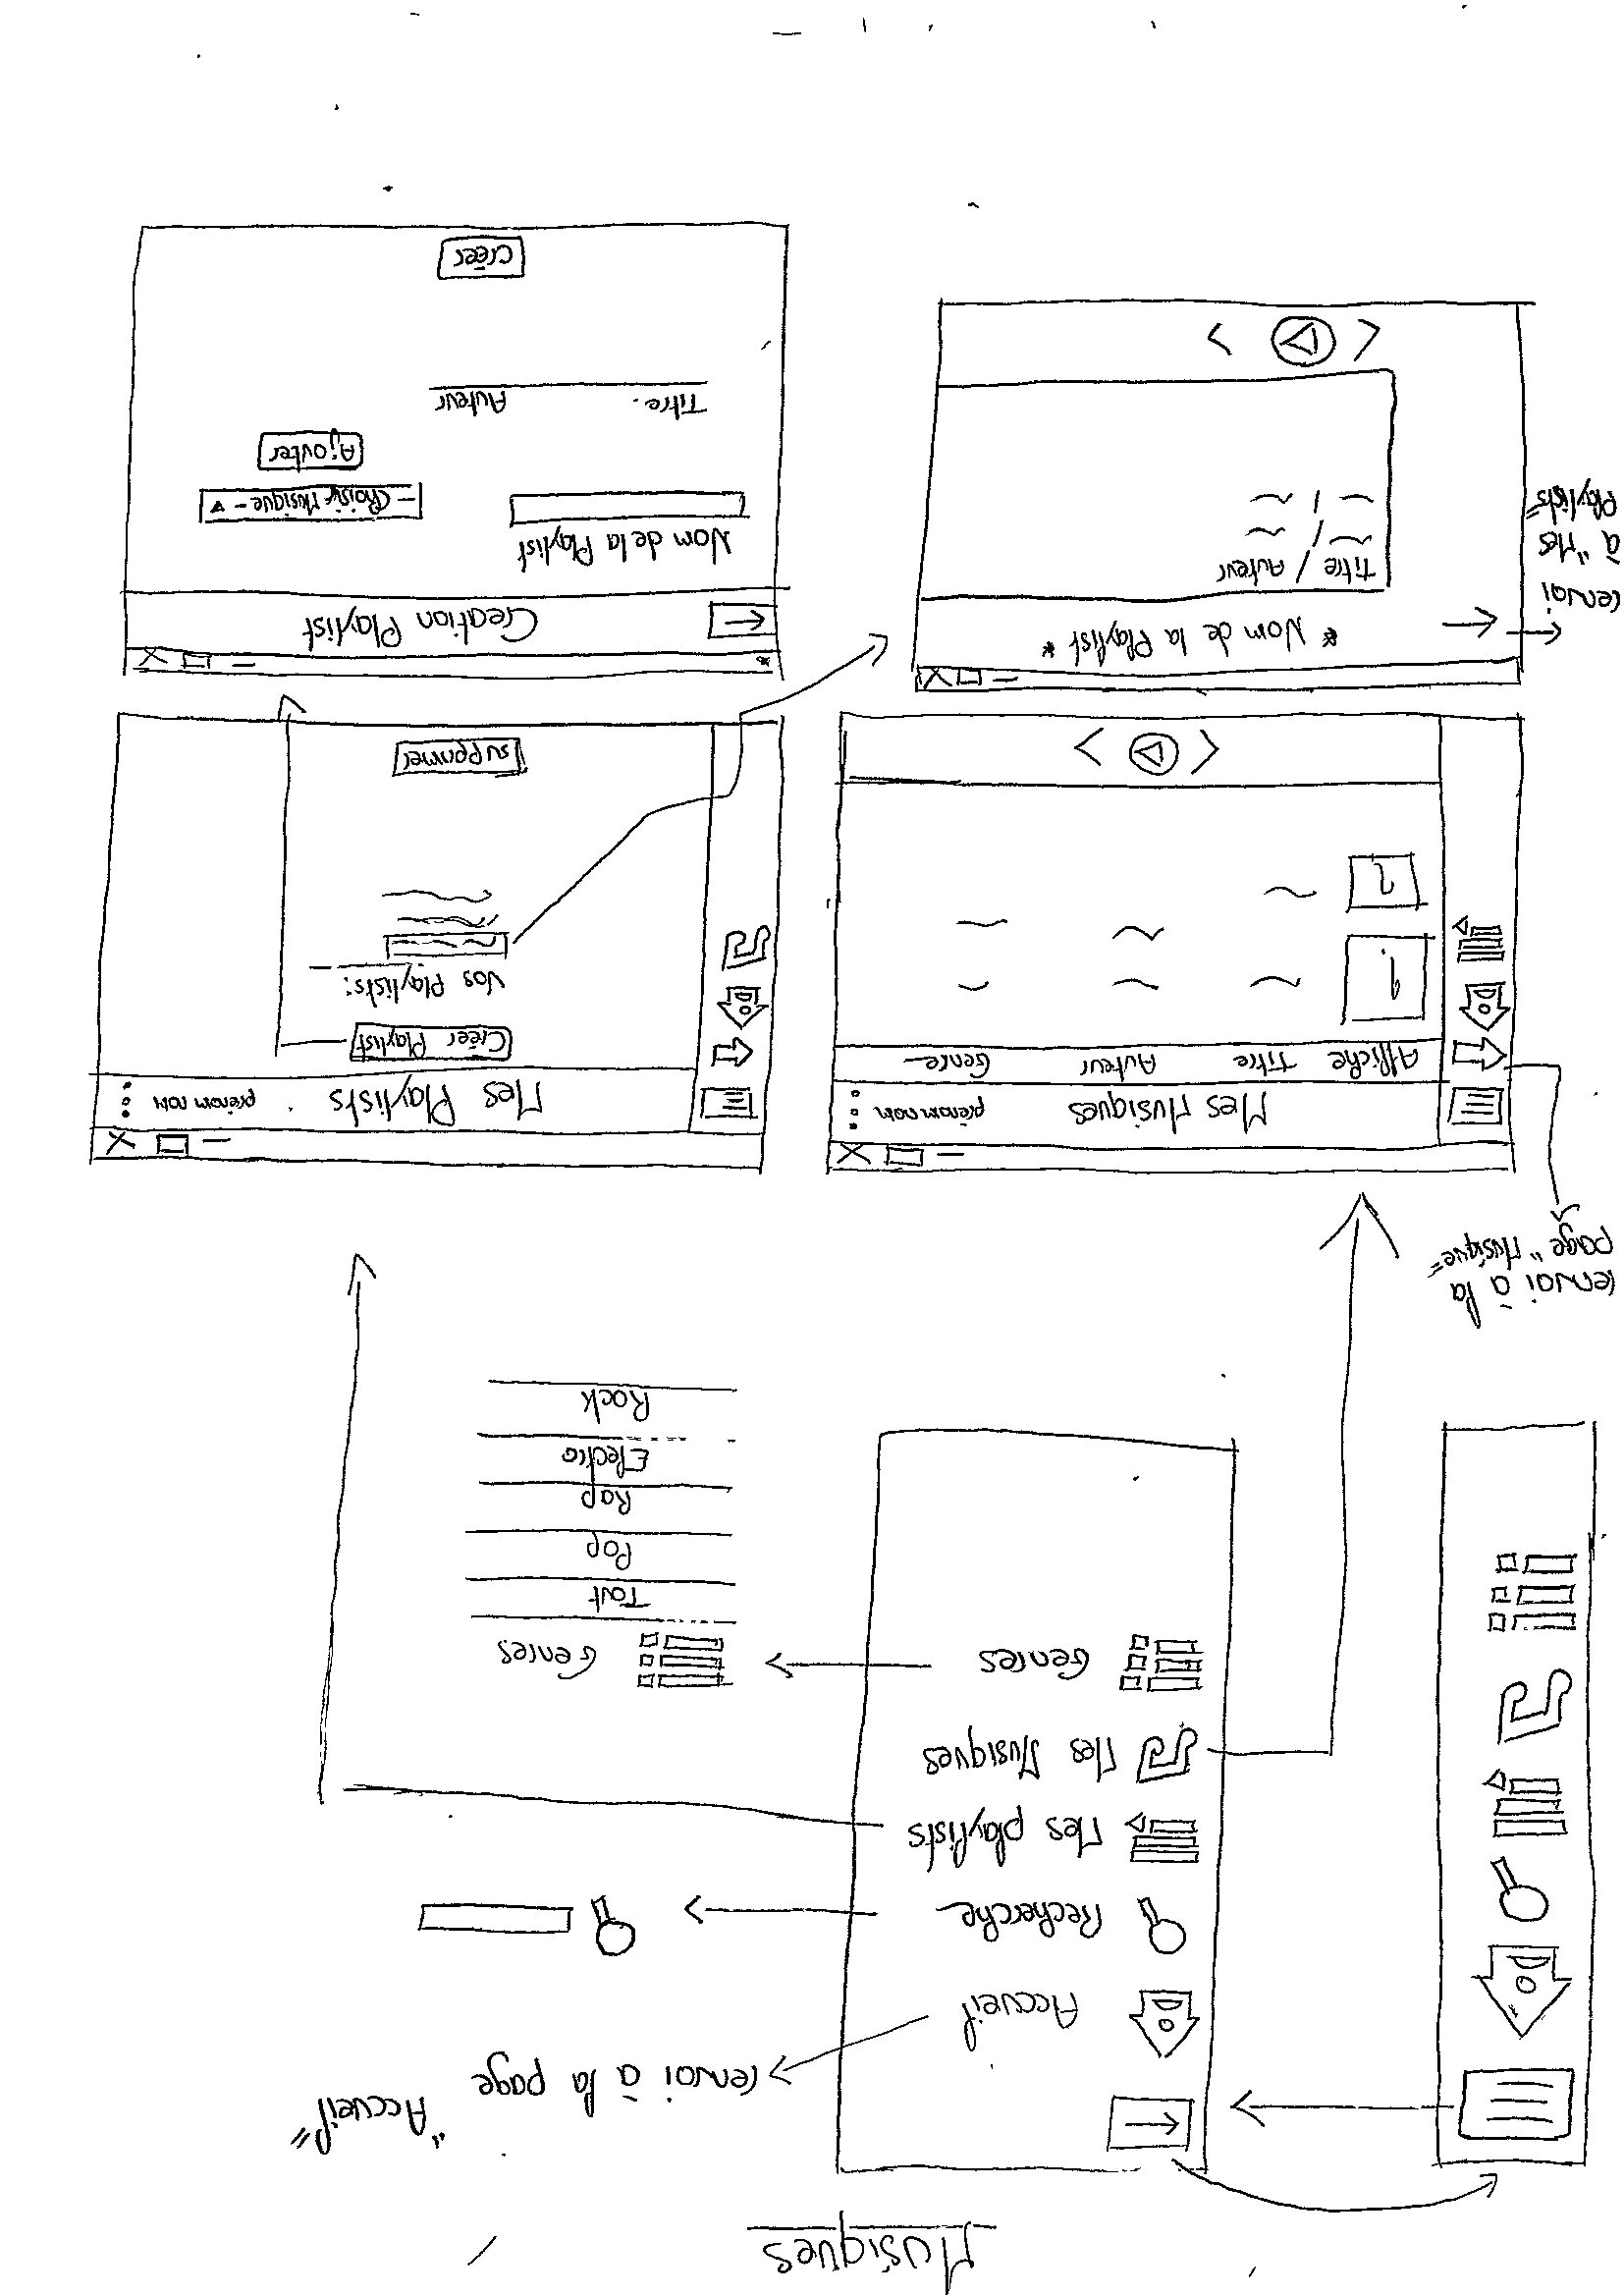 Musiques
"Accueil"
renvoi à la page
Accueil
Recherche
Mes playlists
Mes Musiques
Genres
Genres
Tout
Pop
Rap
Electro
Rock
renvoi à la
page "Musique"
Mes Musiques
prénom nom
Affiche Titre Auteur Genre
?
?
Mes Playlists
prénom nom
Créer Playlist
Vos Playlists:
supprimer
* Nom de la Playlist *
renvoi
à "Mes
Playlists"
Titre / Auteur
/
/
Creation Playlist
Nom de la Playlist
- Choisir Musique -
Ajouter
Titre. Auteur
créer